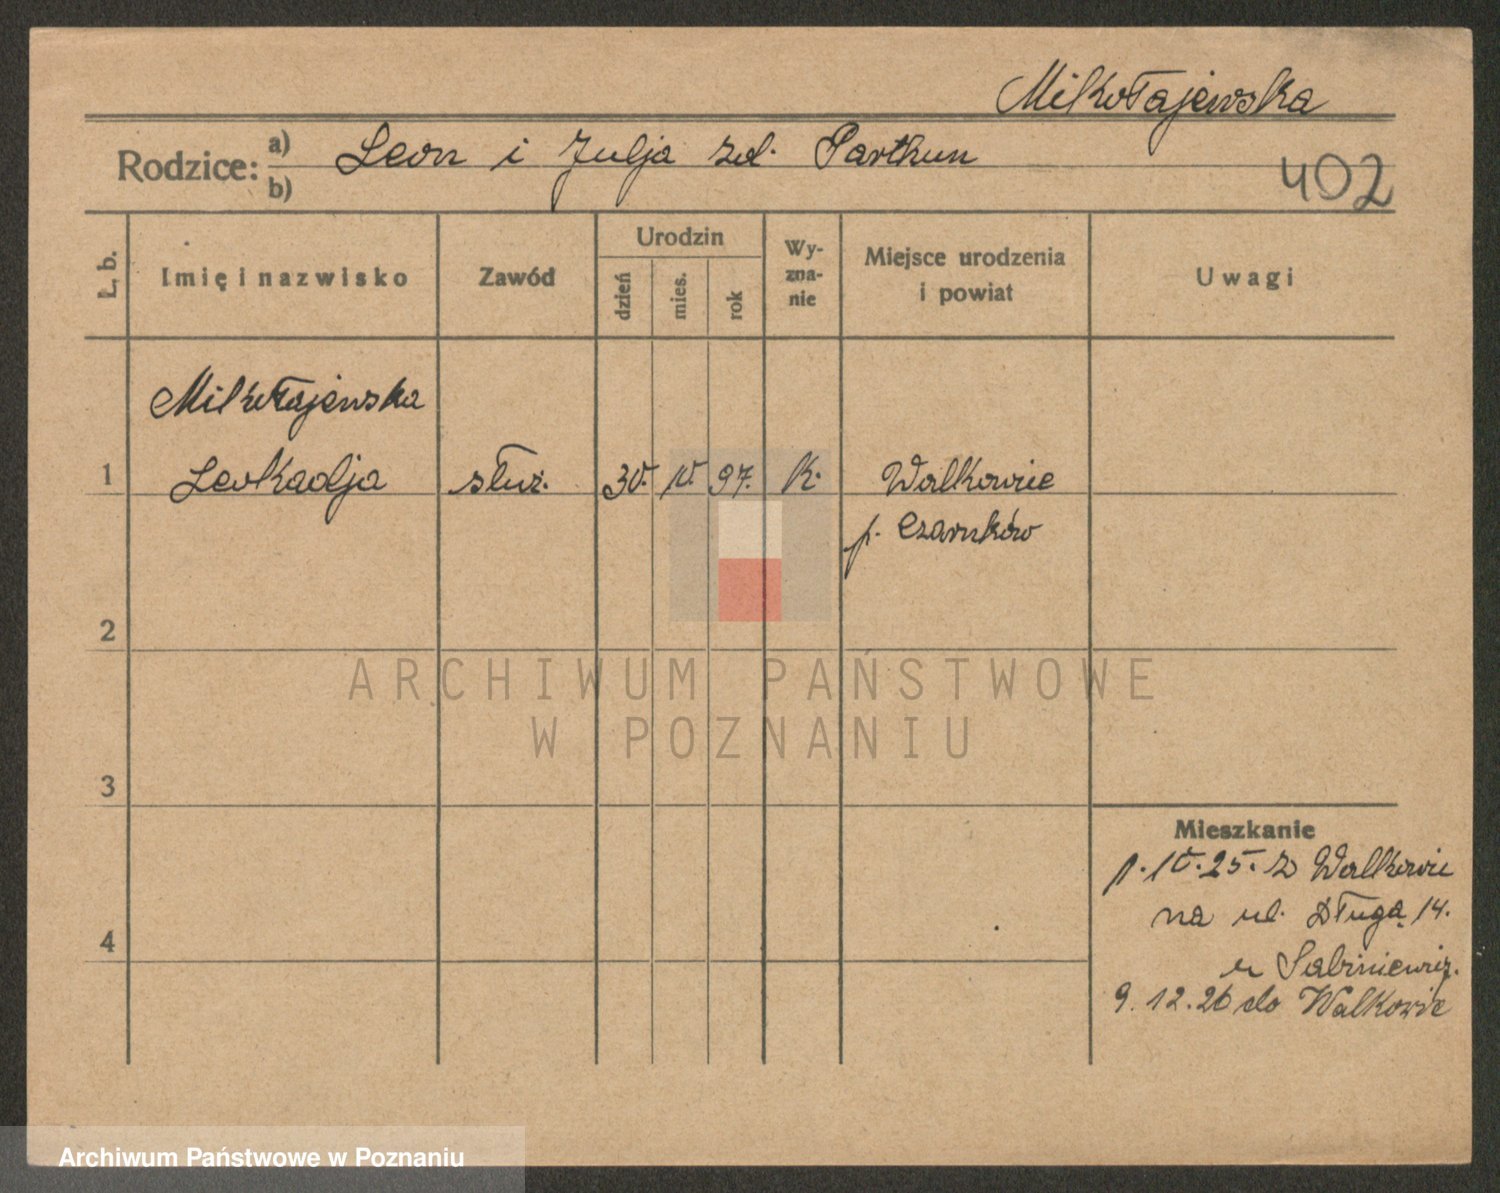 Mikołajewska
Rodzice: a) Leon i Julja zd. Partkun
b)
402
L. b.
Imię i nazwisko
Zawód
Urodzin
dzień
mies.
rok
Wy-
zna-
nie
Miejsce urodzenia
i powiat
Uwagi
Mikołajewska
1 Leokadja służ. 30. 97. k. Walkowice
p. Czarnków
2
ARCHIWUM PAŃSTWOWE
W POZNANIU
3
4
Mieszkanie
25. z Walkowic
na ul. Długą 14.
u
9.12.26 do Walkowic
Archiwum Państwowe w Poznaniu